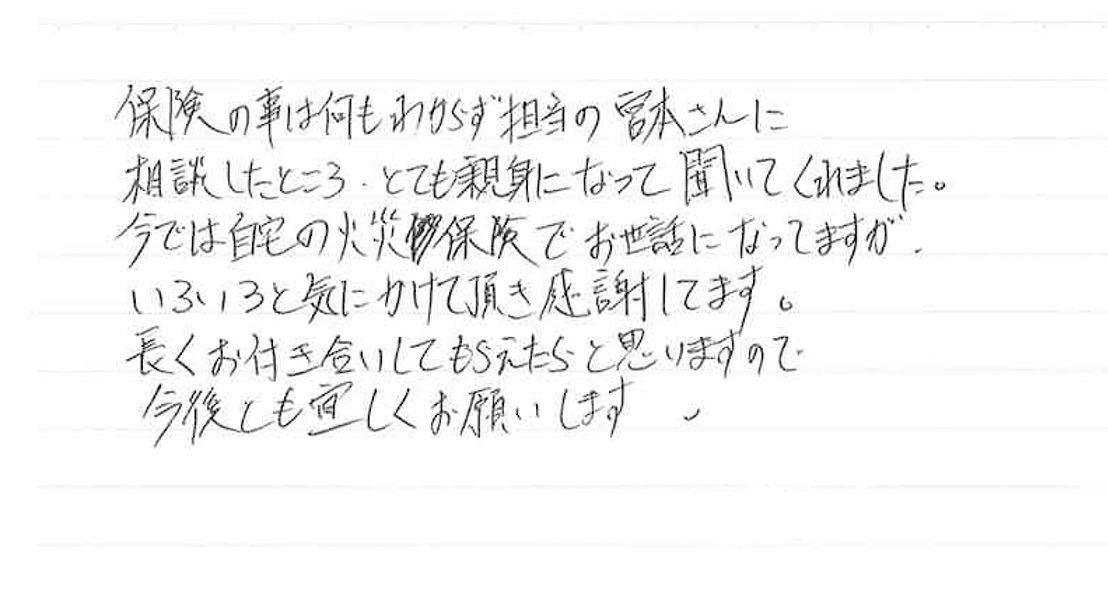 保険の事は何もわからず担当の宮本さんに
相談したところ、とても親身になって聞いてくれました。
今では自宅の火災保険でお世話になってますが、
いろいろと気にかけて頂き感謝してます。
長くお付き合いしてもらえたらと思いますので
今後とも宜しくお願いします